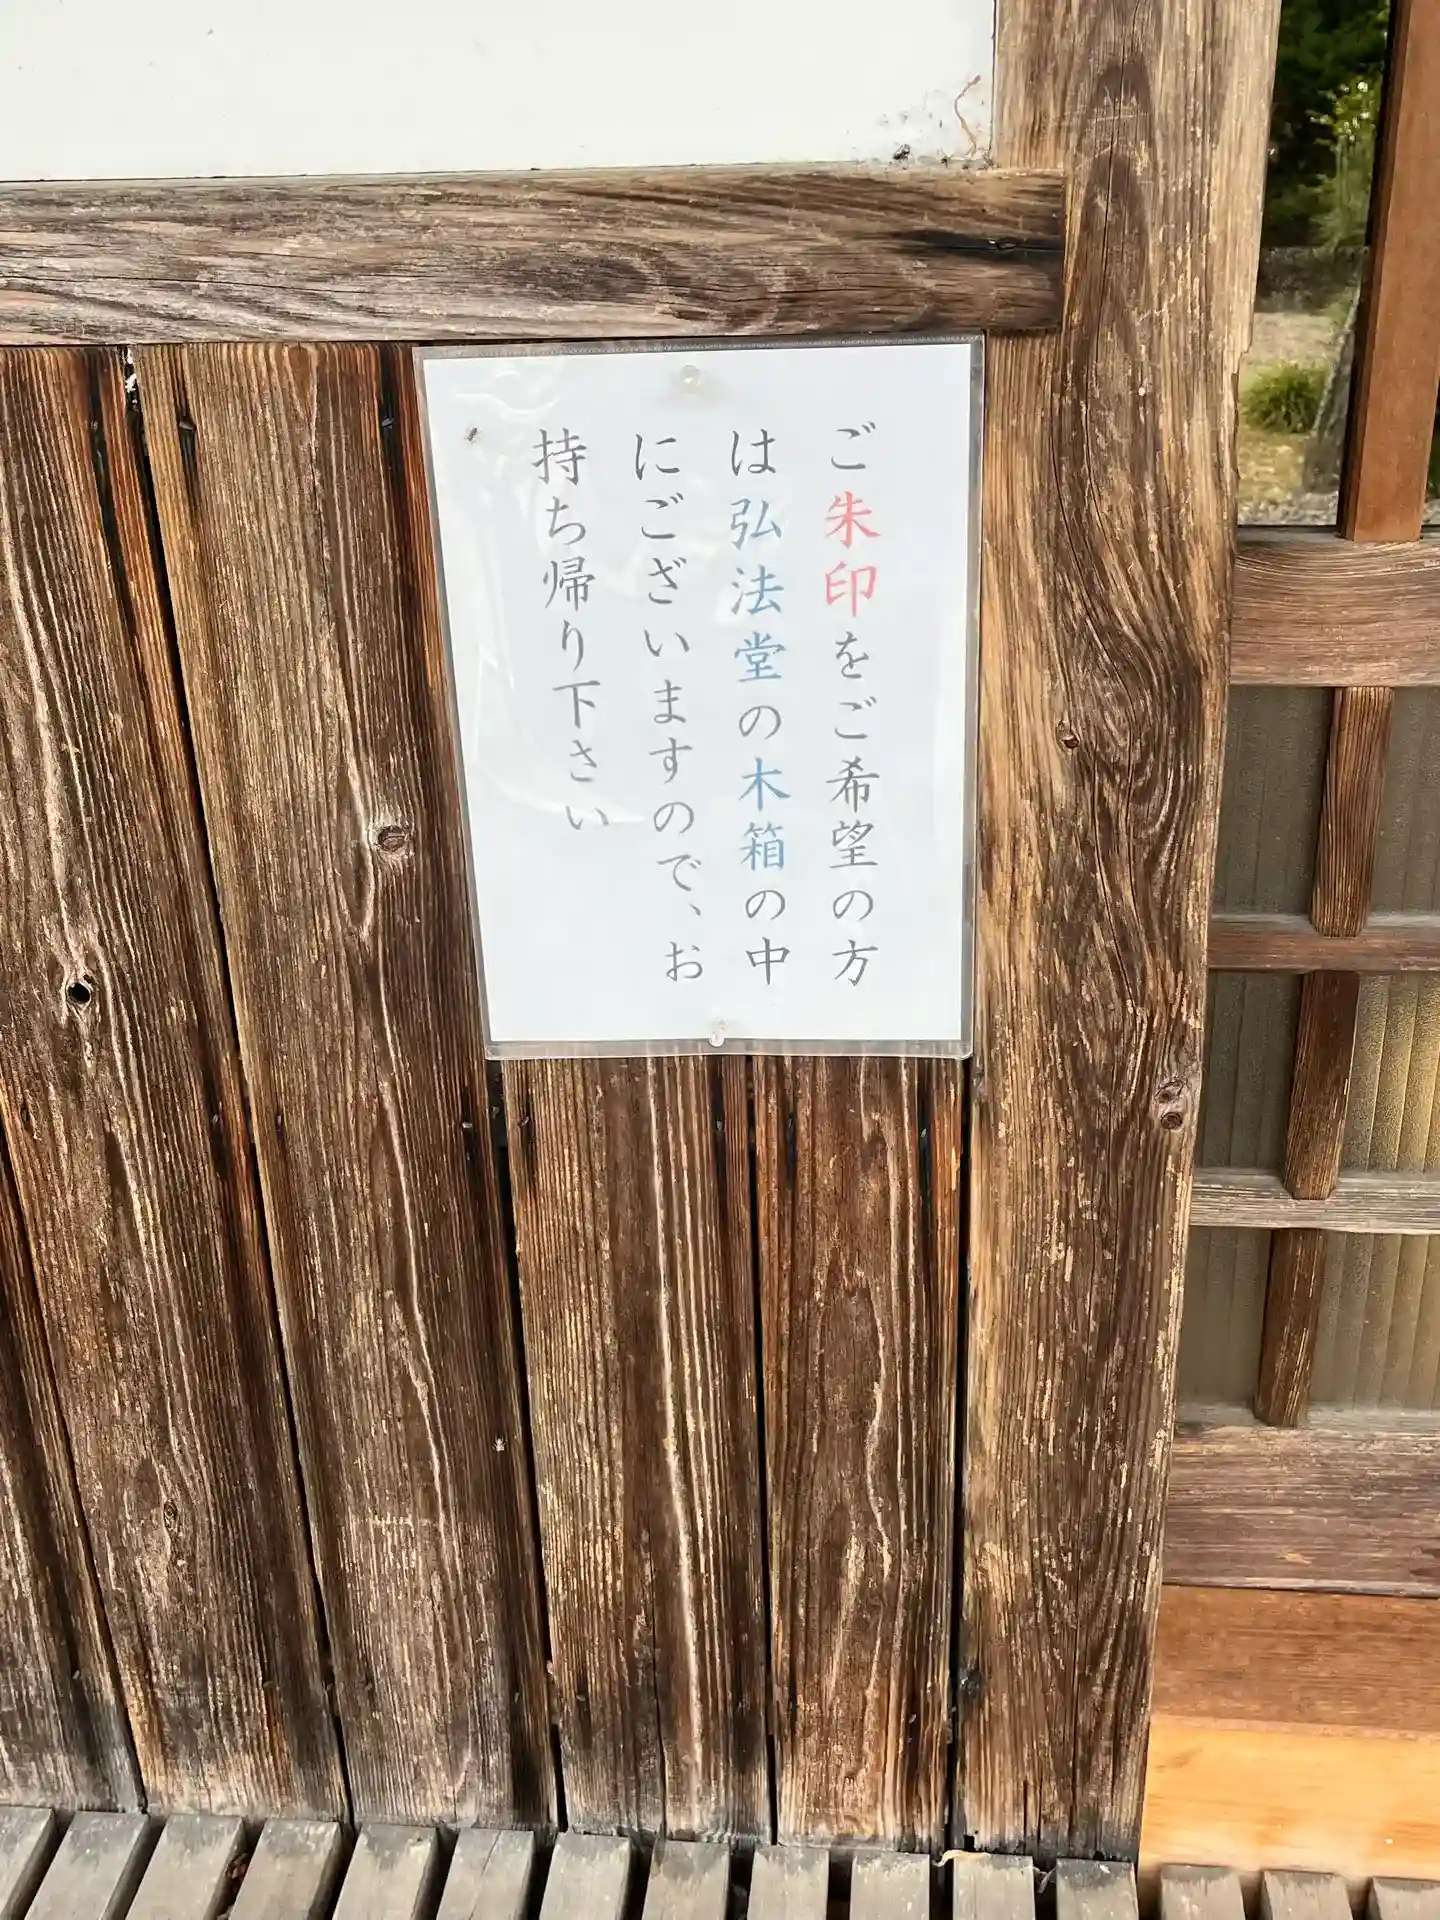 ご朱印をご希望の方
は弘法堂の木箱の中
にございますので、お
持ち帰り下さい